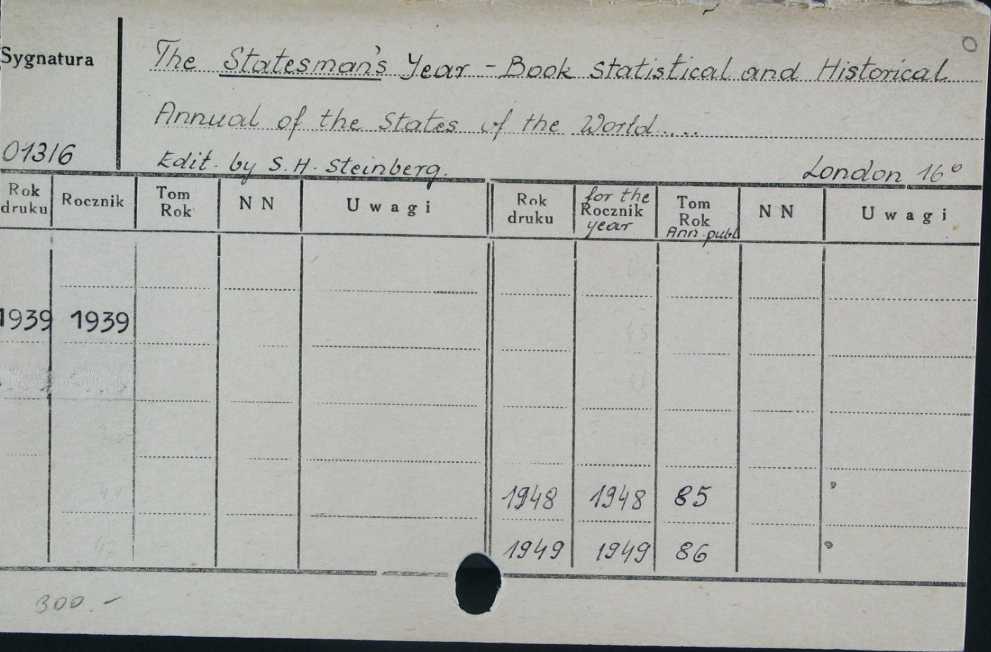 Sygnatura
The Statesman's Year-Book Statistical and Historical
Annual of the States of the World....
01316
Edit. by S. H. Steinberg.
London 16°
Rok druku
Rocznik
Tom Rok
N N
Uwagi
Rok druku
for the Rocznik year
Tom Rok Ann. publ
N N
Uwagi
1939 1939
1948 1948 85
1949 1949 86
300.-